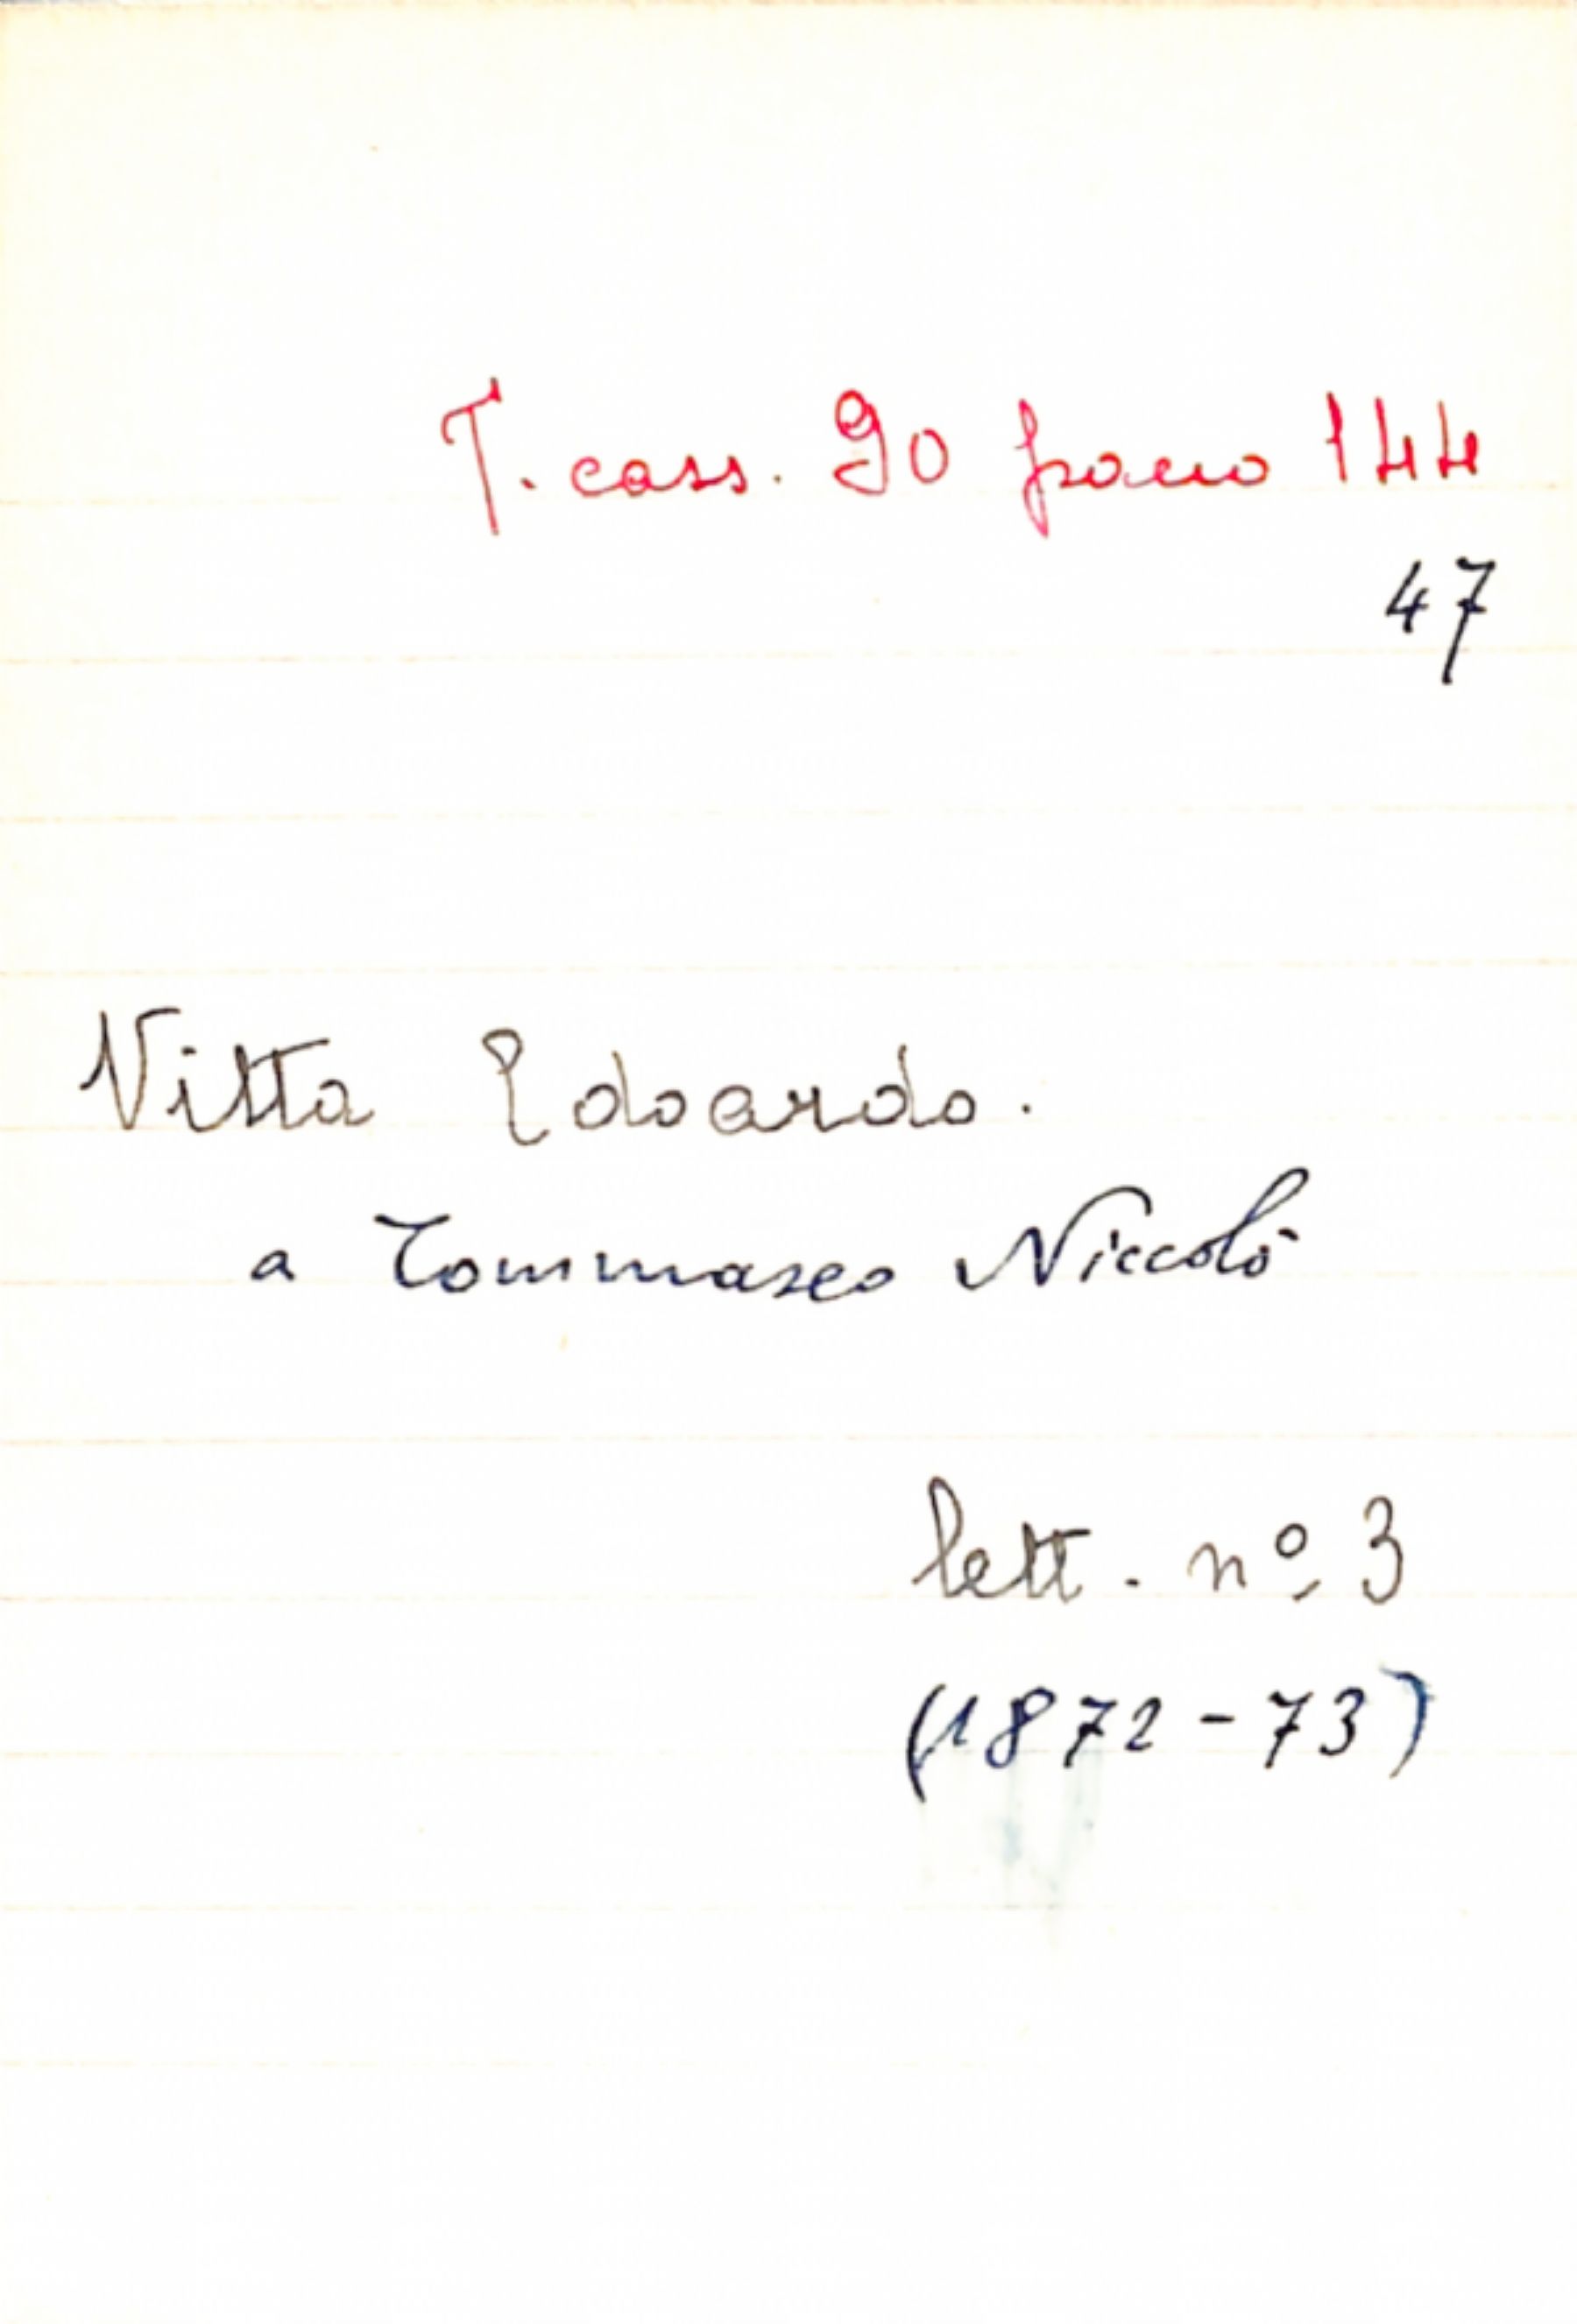 T. cass. 90 116 144
47
Vitta Edoardo.
a Tommaseo Niccolò
lett. nº 3
(1872-73)